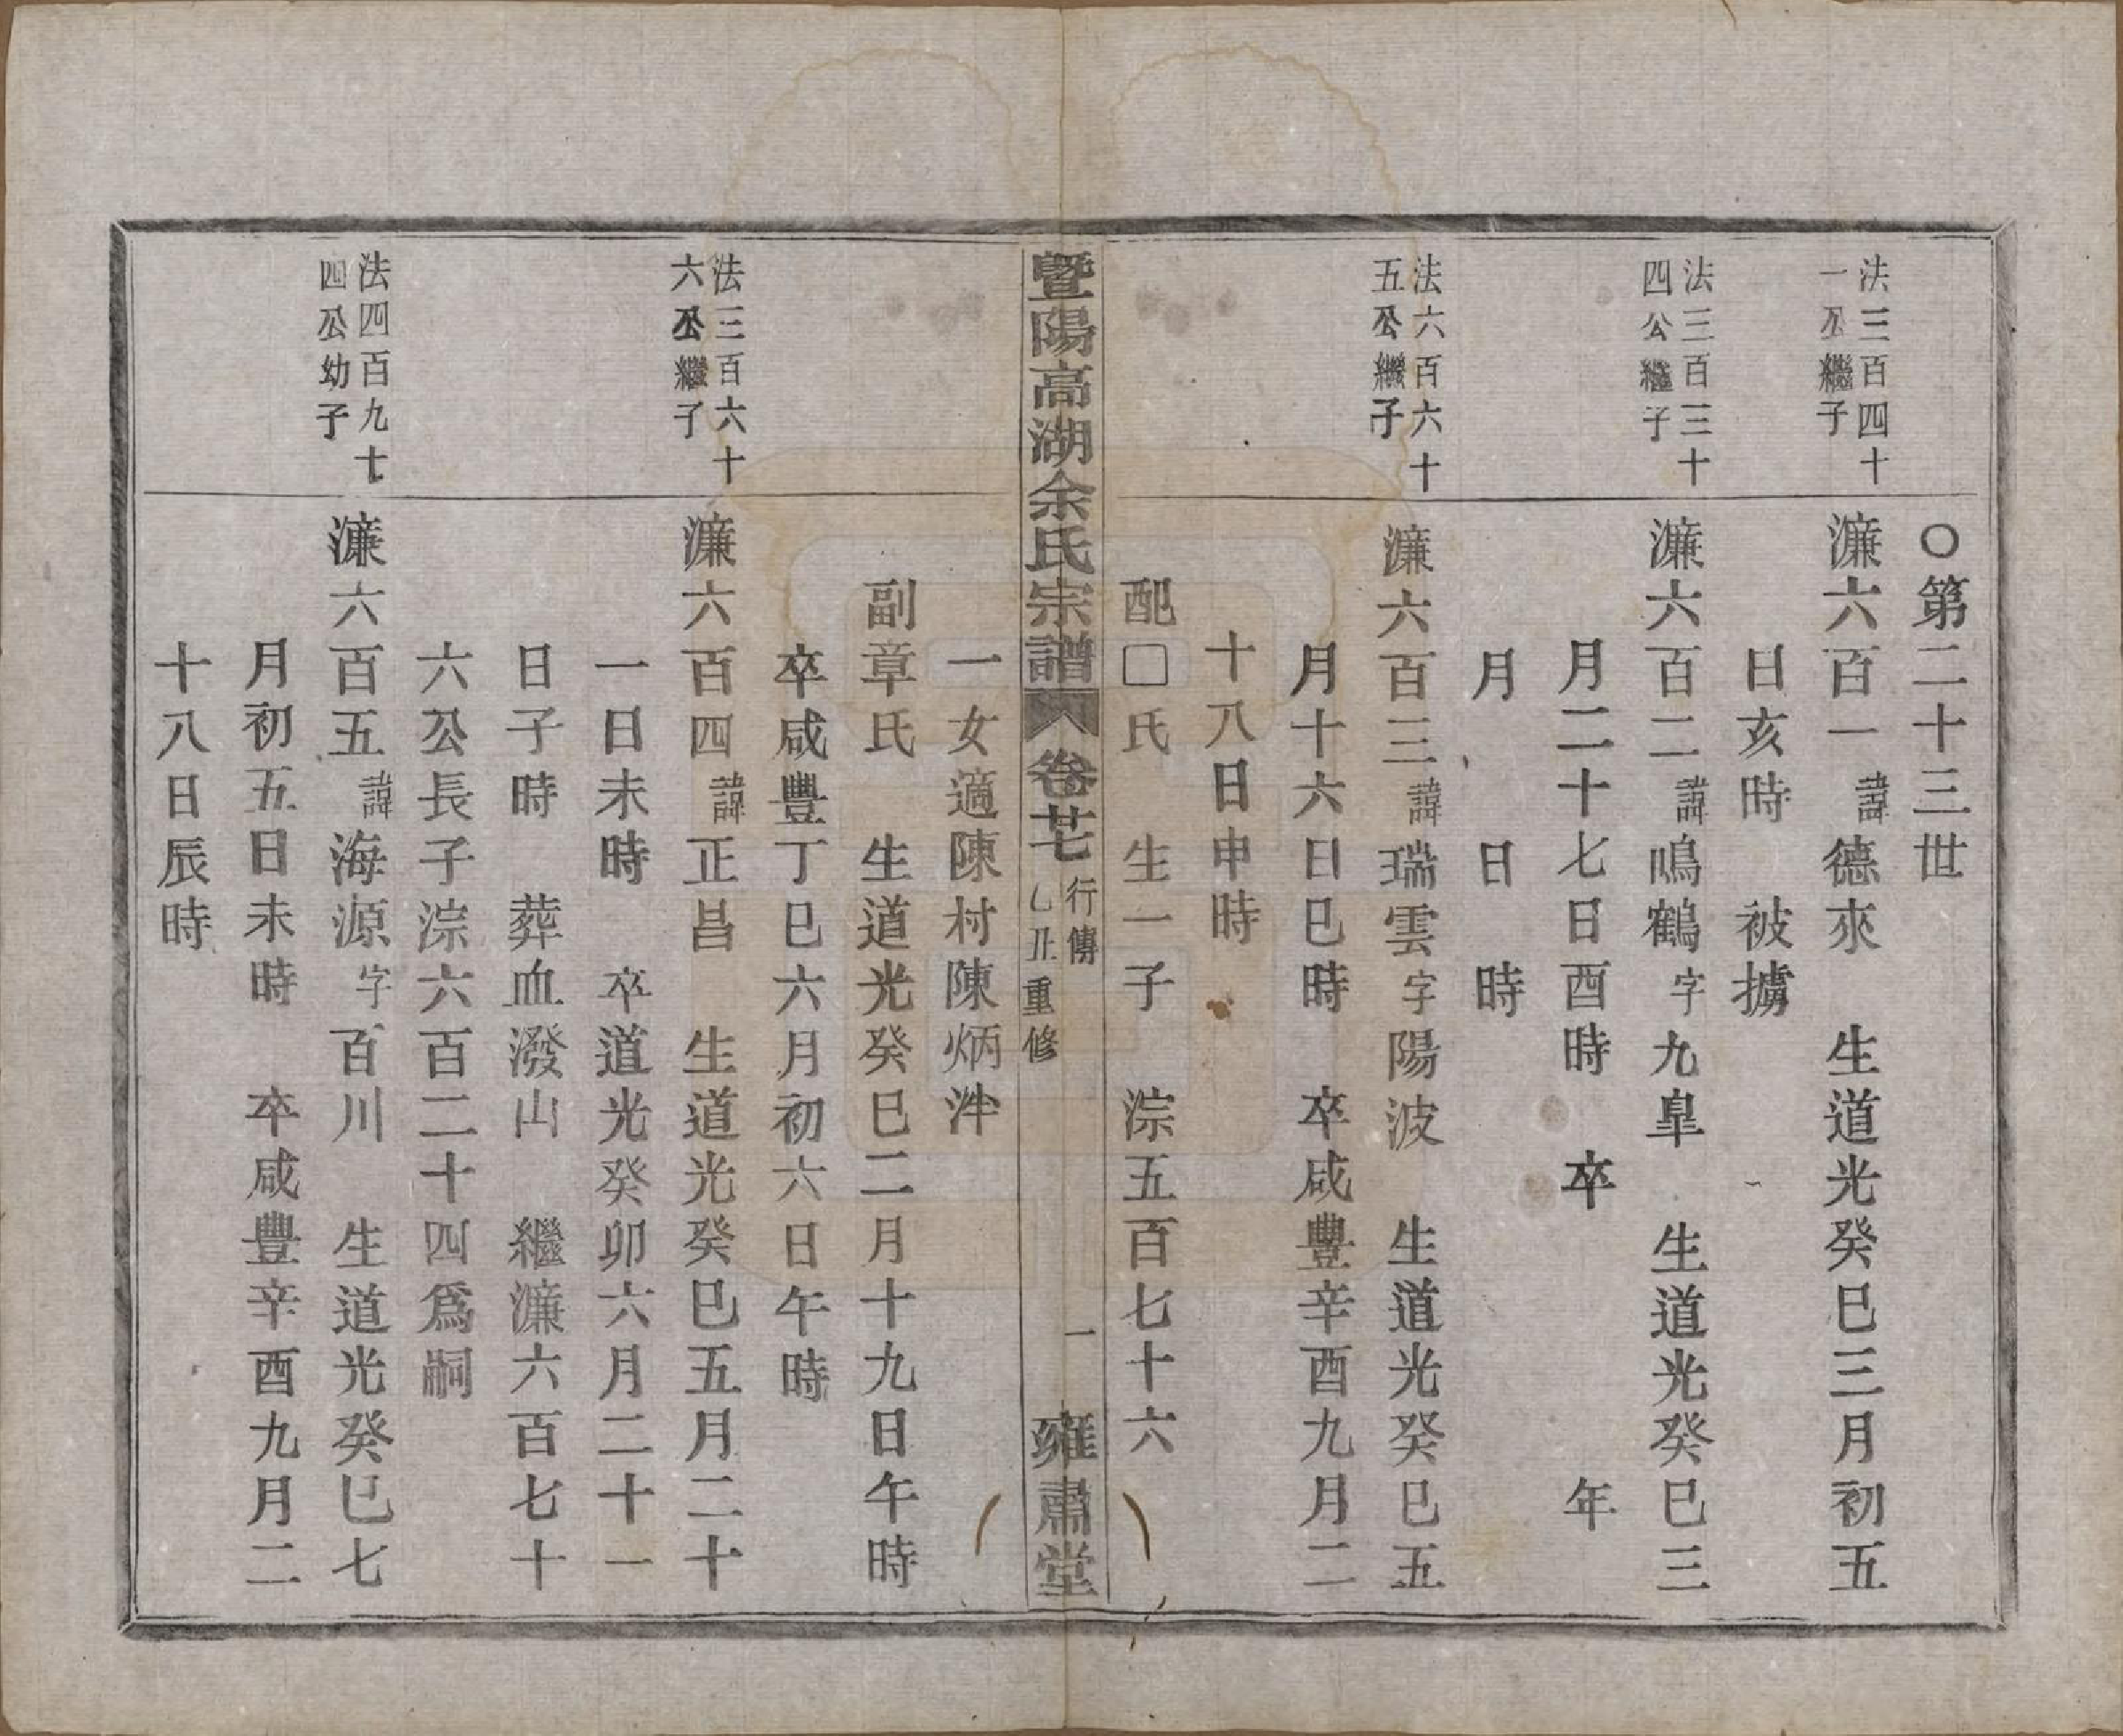 ○第二十三世
法三百四十
一公繼子
濂六百一諱德來　生道光癸巳三月初五
日亥時　被擄
法三百三十
四公繼子
濂六百二諱鳴鶴字九臯　生道光癸巳三
月二十七日酉時　卒　年
月　日　時
法六百六十
五公繼子
濂六百三諱瑞雲字陽波　生道光癸巳五
月十六日巳時　卒咸豐辛酉九月二
十八日申時
配□氏　生一子　淙五百七十六
暨陽高湖余氏宗譜　卷廿七　行傳　乙丑重修　一　雍肅堂
一女適陳村陳炳泮
副章氏　生道光癸巳二月十九日午時
卒咸豐丁巳六月初六日午時
法三百六十
六公繼子
濂六百四諱正昌　生道光癸巳五月二十
一日未時　卒道光癸卯六月二十一
日子時　葬血潑山　繼濂六百七十
六公長子淙六百二十四爲嗣
法四百九十
四公幼子
濂六百五諱海源字百川　生道光癸巳七
月初五日未時　卒咸豐辛酉九月二
十八日辰時